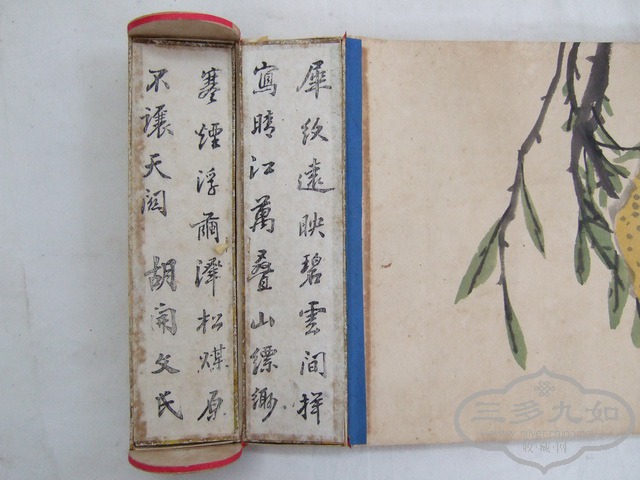 犀紋遠映碧雲間揮
寫晴江萬疊山縹緲
寒煙浮爾澤松煤原
不讓天關 胡開文氏
三多九如
收藏网